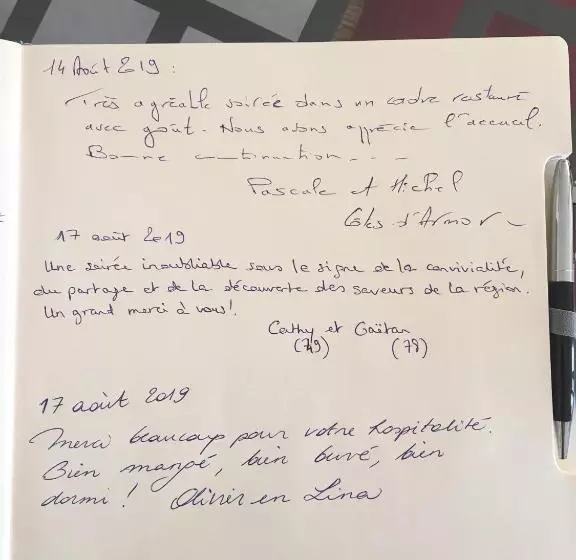 14 Août 2019 :
Très agréable soirée dans un cadre restauré
avec goût. Nous avons apprécié l'accueil.
Bonne continuation...
Pascale et Michel
Côtes d'Armor
17 août 2019
Une soirée inoubliable sous le signe de la convivialité,
du partage et de la découverte des saveurs de la région.
Un grand merci à vous!
Cathy et Gaëtan
(49) (78)
17 août 2019
Merci beaucoup pour votre hospitalité.
Bien mangé, bien buvé, bien
dormi! Olivier en Lina